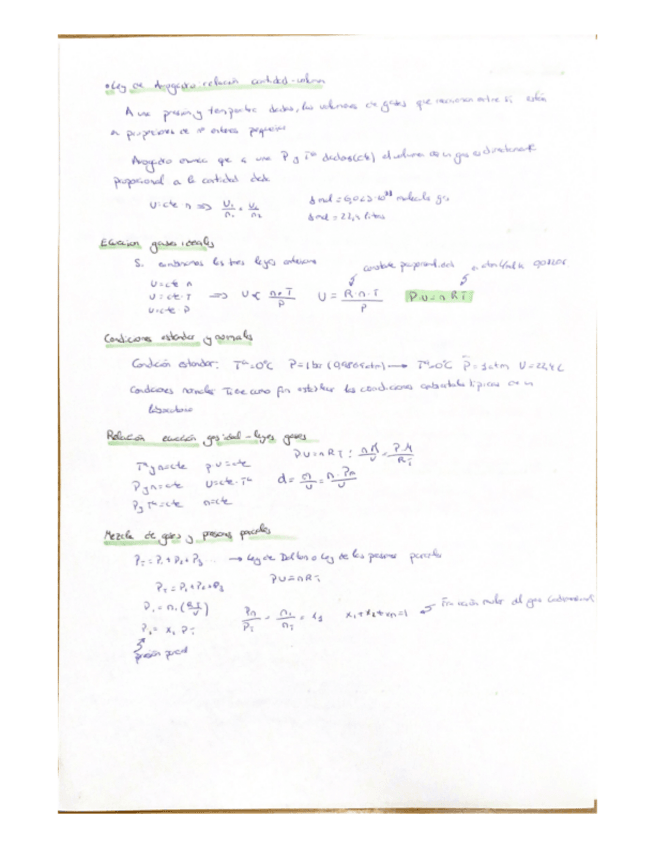 • Ley de Avogadro: relación cantidad-volumen
A una presión y temperatura dadas, los volúmenes de gases que reaccionan entre sí están
en proporciones de nº enteros pequeños
Avogadro enuncia que a una P y Tª dadas (cte) el volumen de un gas es directamente
proporcional a la cantidad
V = cte n => V1/n1 = V2/n2
1 mol = 6,023·10²³ moléculas gas
1 mol = 22,4 litros
Ecuación gases ideales
Si combinamos las tres leyes anteriores
constante proporcionalidad
V = cte n
V = cte · T => V ∝ n·T/P V = R·n·T/P P·V = nRT
V = cte · P
Condiciones estándar y normales
Condición estándar: Tª = 0ºC P = 1 bar → Tª = 0ºC P = 1 atm V = 22,4 L
Condiciones normales Tiene como fin establecer las condiciones ambientales típicas de un
laboratorio
Relación ecuación gas ideal - leyes gases
PV = nRT;
Tª y n = cte P·V = cte
P y n = cte V = cte · Tª d = m/V = n·Pm/V
P y Tª = cte n = cte
Mezcla de gases y presiones parciales
PT = P1 + P2 + P3 → Ley de Dalton o Ley de las presiones parciales
PT = P1 + P2 + P3 PV = nRT
P1 = n1 (RT/V)
x1 + x2 + = 1 Fracción molar del gas
P1 = x1 PT
presión parcial